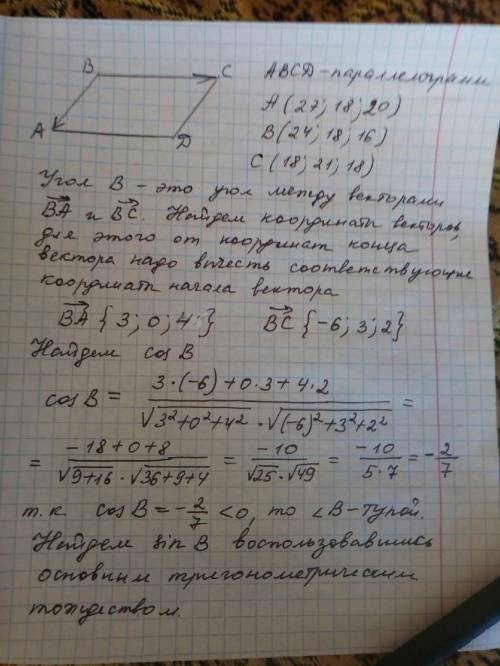 B C ABCD-параллелограмм
A(27; 18; 20)
A D B(24; 18; 16)
C(18; 21; 18)
Угол B - это угол между векторами
BA и BC. Найдем координаты векторов,
для этого от координат конца
вектора надо вычесть соответствующие
координаты начала вектора
BA {3; 0; 4;} BC {-6; 3; 2}
Найдем cos B
cos B = (3·(-6)+0·3+4·2)/(√3²+0²+4² · √(-6)²+3²+2²) =
= (-18+0+8)/(√9+16 · √36+9+4) = -10/(√25·√49) = -10/(5·7) = -2/7
т.к. cos B = -2/7 <0, то ∠B-тупой.
Найдем sin B воспользовавшись
основным тригонометрическим
тождеством.